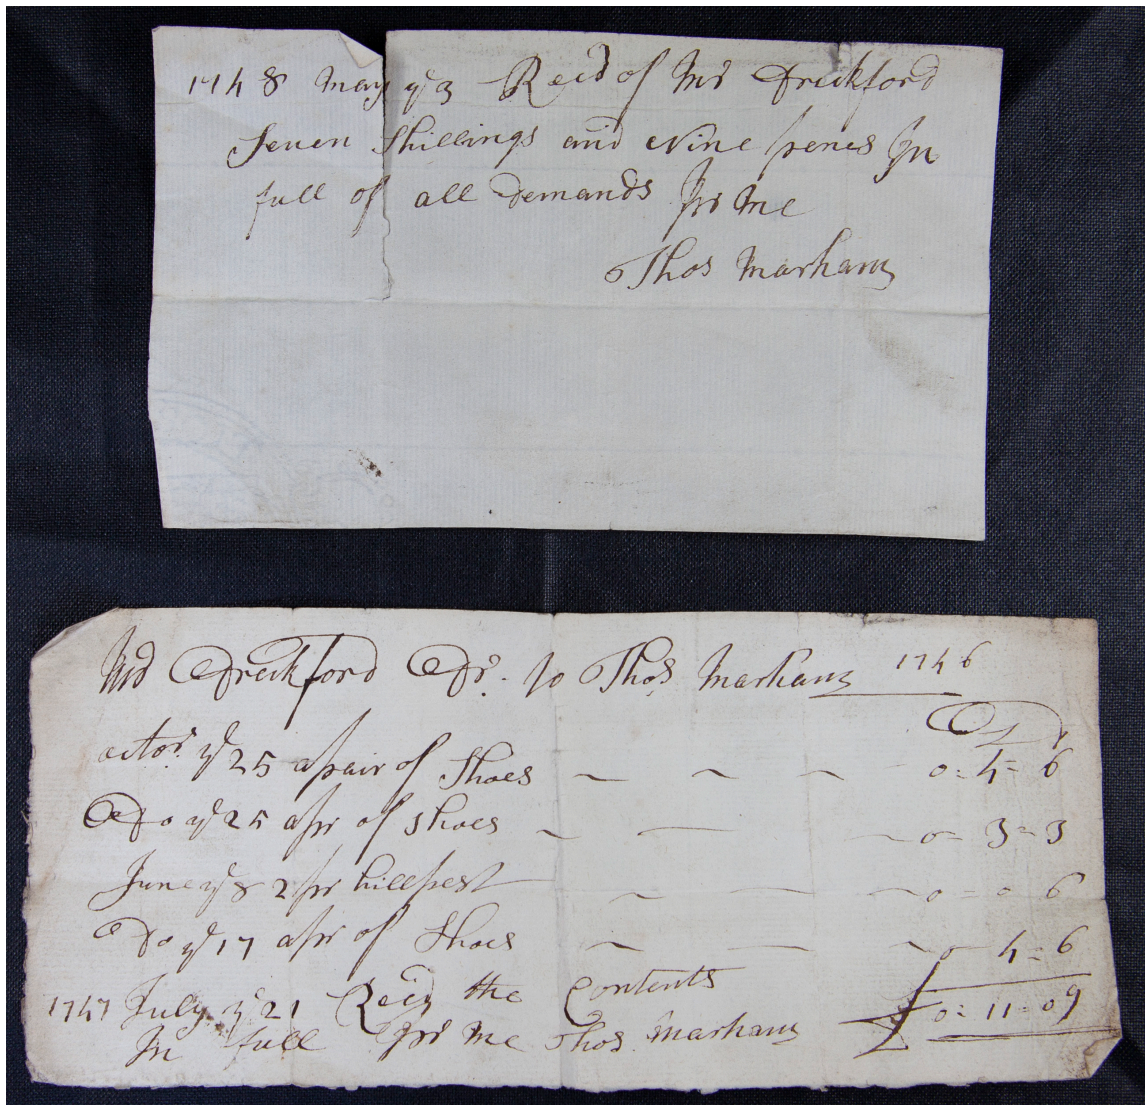 1748 May ye 3 Recd of Mr Dreckford
Seven Shillings and Nine penes In
full of all Demands pr Me
Thos Marham
Mr Dreckford Dr. to Thos Marham 1746
octor ye 25 a pair of Shoes 0=4=6
Do ye 25 a pr of shoes 0=3=3
June ye 8 2 pr hillpest 0=0 6
Do ye 17 a pr of Shoes 0 4=6
1747 July ye 21 Recd the Contents £0=11=09
In full pr Me Thos Marham